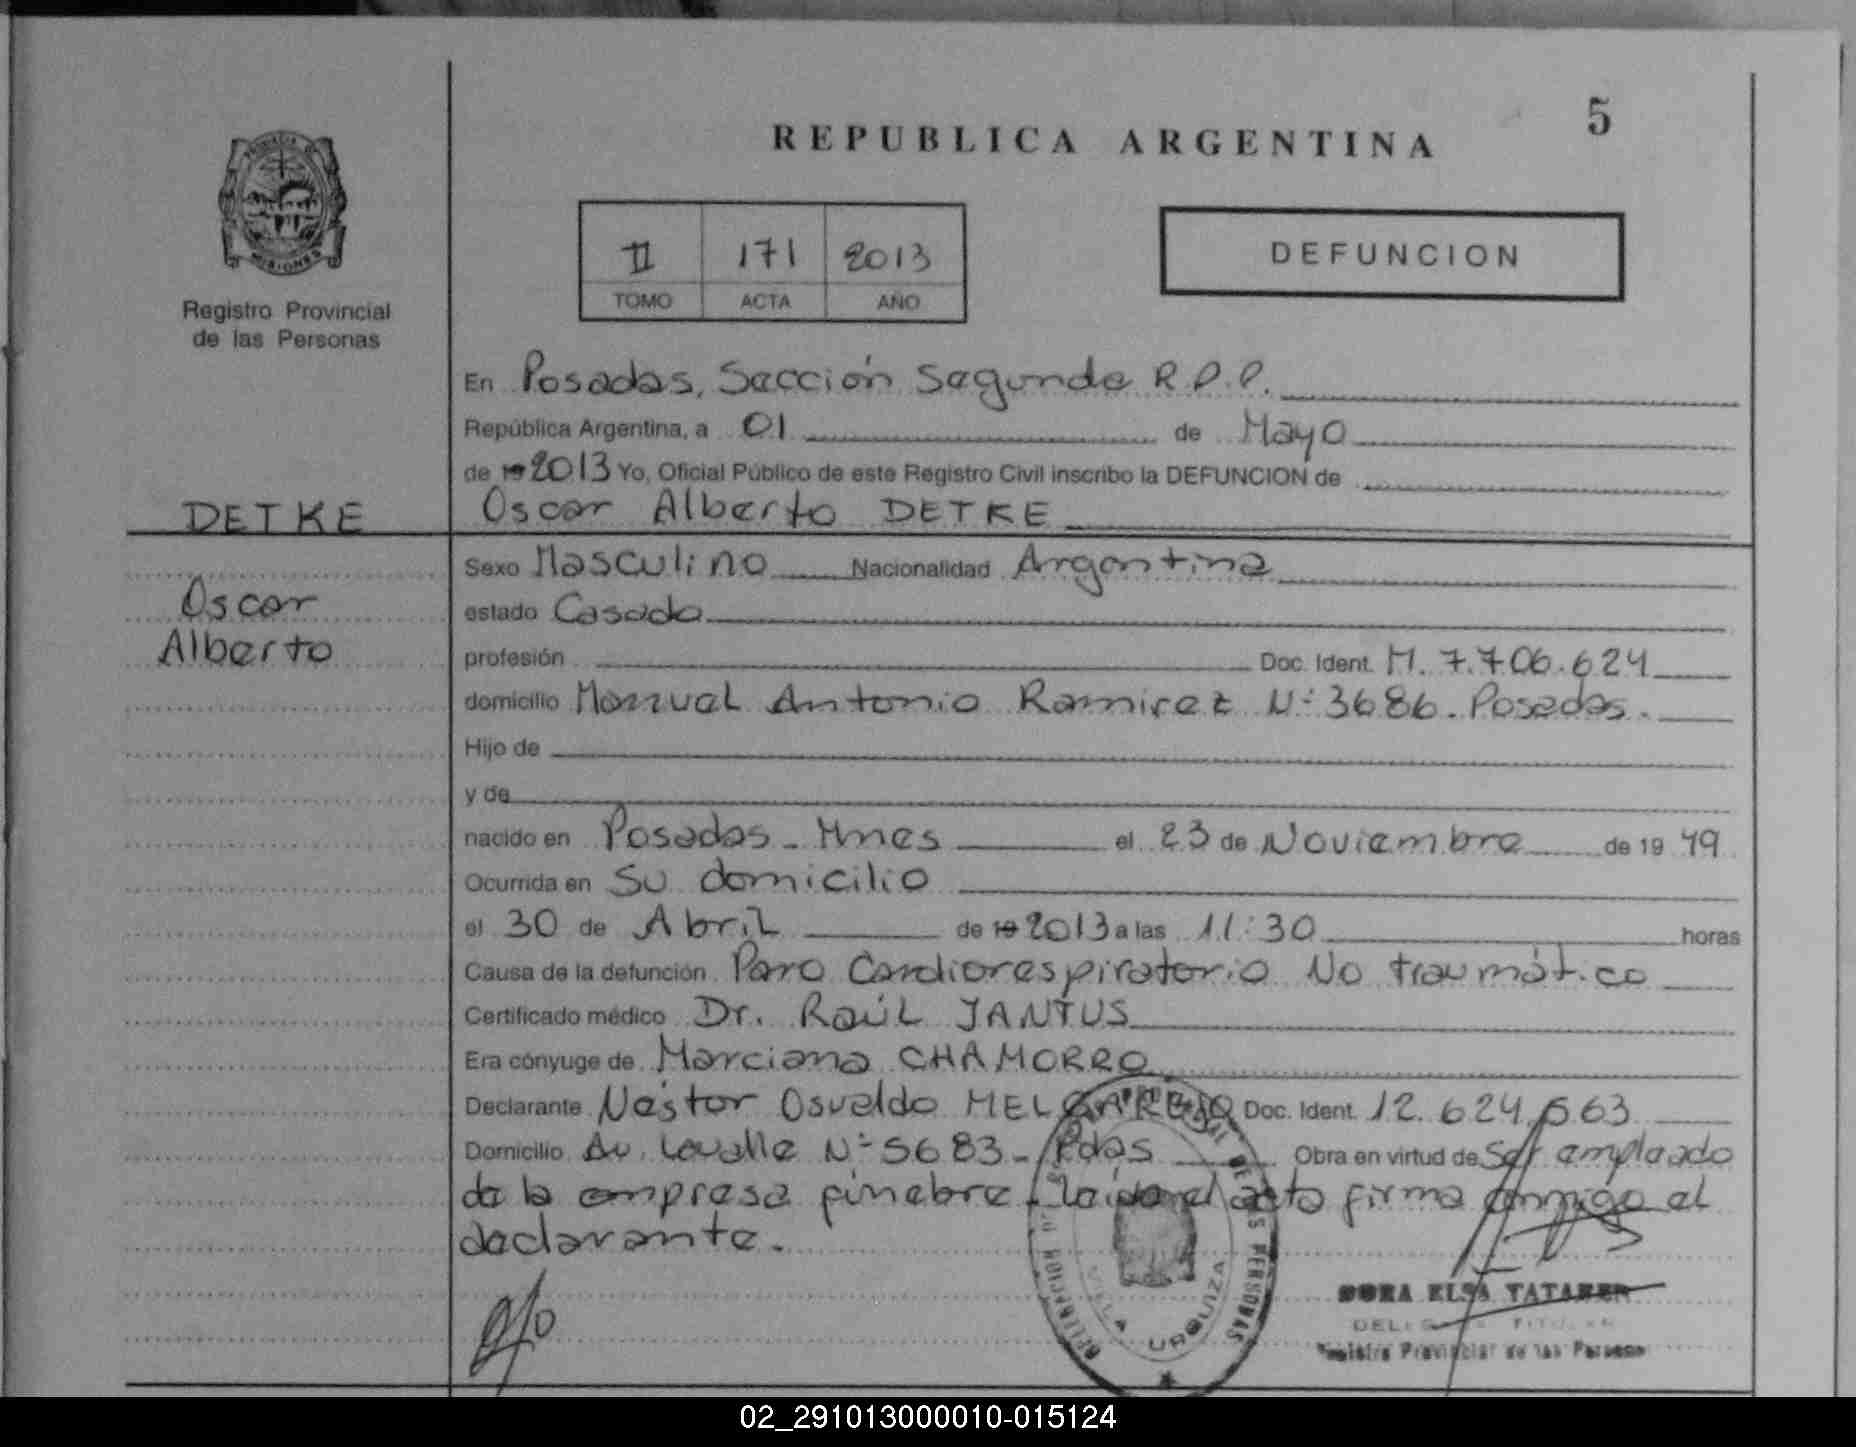 5
REPUBLICA ARGENTINA
PROVINCIA DE
MISIONES
Registro Provincial
de las Personas
II 171 2013
TOMO ACTA AÑO
DEFUNCION
En Posadas, Sección Segunda R.P.P.
República Argentina, a 01 de Mayo
de 19 2013 Yo, Oficial Público de este Registro Civil inscribo la DEFUNCION de
DETKE
Oscar Alberto DETKE
Oscar
Alberto
Sexo Masculino Nacionalidad Argentina
estado Casado
profesión Doc. Ident. M. 7.706.624
domicilio Manuel Antonio Ramirez Nº 3686. Posadas.
Hijo de
y de
nacido en Posadas - Mnes el 23 de Noviembre de 19 49
Ocurrida en Su domicilio
el 30 de Abril de 19 2013 a las 11:30 horas
Causa de la defunción Paro Cardiorespiratorio No traumático
Certificado médico Dr. Raúl JANTUS
Era cónyuge de Marciana CHAMORRO
Declarante Néstor Osvaldo MELGAREJO Doc. Ident. 12.624.563
Domicilio Av. Lavalle Nº 5683 - Pdas Obra en virtud de Ser empleado
de la empresa fúnebre - leída el acta firma conmigo el
declarante.
DE LAS PERSONAS
VILLA URQUIZA
DORA ELSA TATAREN
Registro Provincial de las Personas
02_291013000010-015124